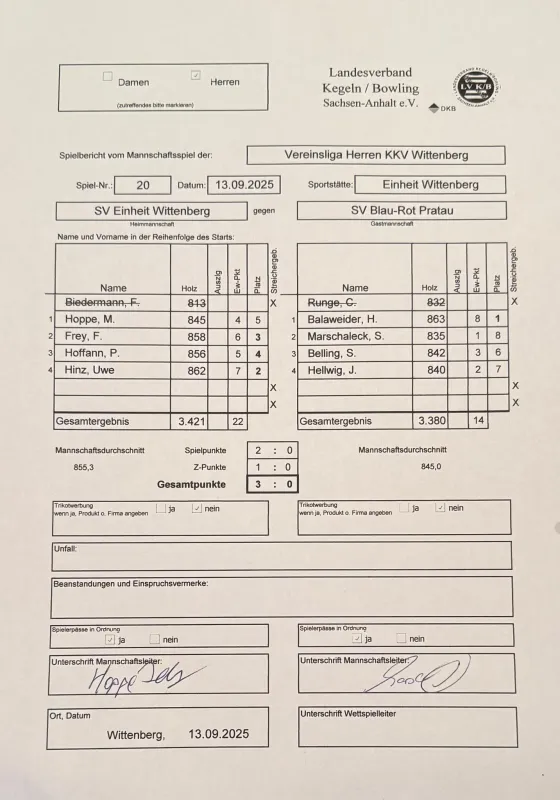 Damen Herren
(zutreffendes bitte markieren)
Landesverband
Kegeln / Bowling
Sachsen-Anhalt e.V.
LVK/B
DKB
Spielbericht vom Mannschaftsspiel der: Vereinsliga Herren KKV Wittenberg
Spiel-Nr.: 20 Datum: 13.09.2025 Sportstätte: Einheit Wittenberg
SV Einheit Wittenberg gegen SV Blau-Rot Pratau
Heimmannschaft Gastmannschaft
Name und Vorname in der Reihenfolge des Starts:
Name Holz Auszig Ew-Pkt Platz Streichergeb. Name Holz Auszig Ew-Pkt Platz Streichergeb.
Biedermann, F. 813 X Runge, C. 832 X
1 Hoppe, M. 845 4 5 1 Balaweider, H. 863 8 1
2 Frey, F. 858 6 3 2 Marschaleck, S. 835 1 8
3 Hoffann, P. 856 5 4 3 Belling, S. 842 3 6
4 Hinz, Uwe 862 7 2 4 Hellwig, J. 840 2 7
X X
X X
Gesamtergebnis 3.421 22 Gesamtergebnis 3.380 14
Mannschaftsdurchschnitt Spielpunkte 2 : 0 Mannschaftsdurchschnitt
855,3 Z-Punkte 1 : 0 845,0
Gesamtpunkte 3 : 0
Trikotwerbung ja nein Trikotwerbung ja nein
wenn ja, Produkt o. Firma angeben wenn ja, Produkt o. Firma angeben
Unfall:
Beanstandungen und Einspruchsvermerke:
Spielerpässe in Ordnung Spielerpässe in Ordnung
ja nein ja nein
Unterschrift Mannschaftsleiter: Unterschrift Mannschaftsleiter:
Hoppe
Ort, Datum Unterschrift Wettspielleiter
Wittenberg, 13.09.2025